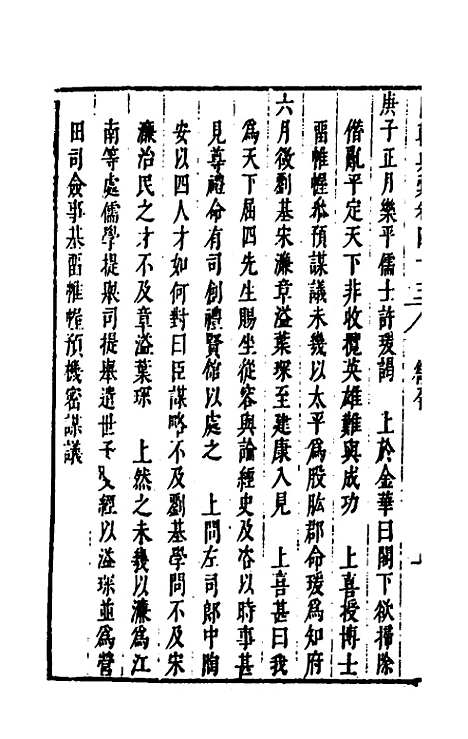 庚子正月樂平儒士許瑗謁　上於金華曰閣下欲掃除
僭亂平定天下非收攬英雄難與成功　上喜授博士
畱帷幄叅預謀議未幾以太平爲股肱郡命瑗爲知府
六月徵劉基宋濂章溢葉琛至建康入見　上喜甚曰我
爲天下屈四先生賜坐從容與論經史及咨以時事甚
見尊禮命有司創禮賢館以處之　上問左司郎中陶
安以四人才如何對曰臣謀略不及劉基學問不及宋
濂治民之才不及章溢葉琛　上然之未幾以濂爲江
南等處儒學提舉司提舉遣世子受經以溢琛並爲營
田司僉事基畱帷幄預機密謀議